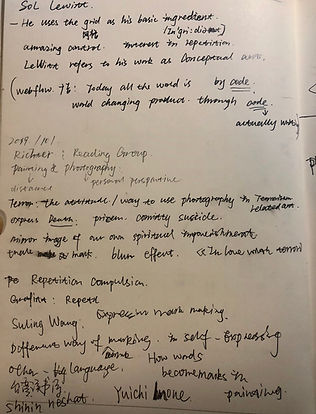 Sol Lewitt.
- He uses the grid as his basic ingredient.
/In'gri:diənt/
amazing control. interest in repetition.
LeWitt refers to his work as Conceptual
- (webflow. Today all the world is by code.
world changing product through code.
actually working
2019. /10/.
Richter: Reading Group.
painting & photography
distance personal perspective
Terror: the attitude / way to use photography in Terrorism
related art.
express Death. prison. commity suicide.
mirror image of our own spiritual impoverishment
mark. blur effect.
Repetition Compulsion.
Repeat
Suling Wang. Expressive mark making.
Different way of marking. in self-expressing
other language. How words
become marks in
painting.
shirin neshat. Yuichi Inoue.